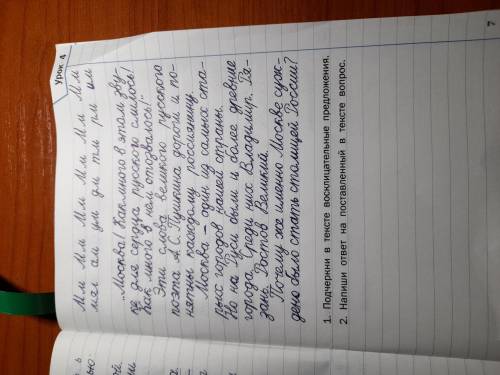 Урок 4
Мм Мм Мм Мм Мм Мм Мм
мял ам ум ым тм рм им
„Москва! Как много в этом зву-
ке для сердца русского слилось!
Как много в нём отозвалось!"
Эти слова великого русского
поэта А.С.Пушкина дороги и по-
нятны каждому россиянину.
Москва – один из самых ста-
рых городов нашей страны.
Но на Руси были и более древние
города. Среди них Владимир, Ря-
зань, Ростов Великий.
Почему же именно Москве суж-
дено было стать столицей России?
1. Подчеркни в тексте восклицательные предложения.
2. Напиши ответ на поставленный в тексте вопрос.
7